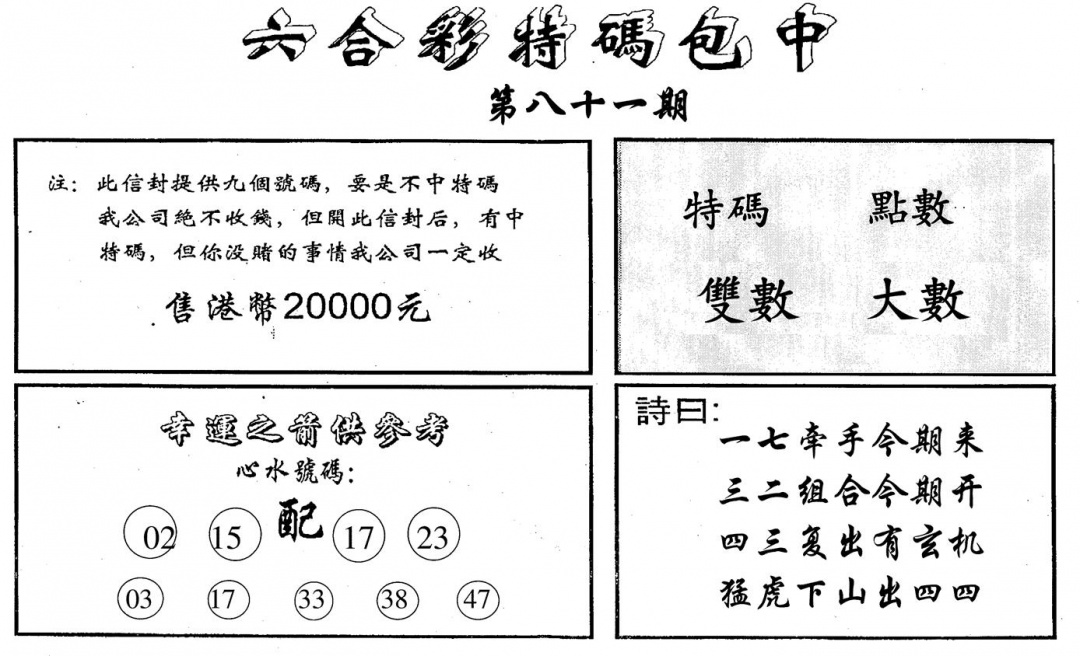 六合彩特碼包中
第八十一期
注：此信封提供九個號碼，要是不中特碼
我公司絶不收錢，但開此信封后，有中
特碼，但你没賭的事情我公司一定收
售港幣20000元
特碼 點數
雙數 大數
幸運之箭供參考
心水號碼：
02 15 配 17 23
03 17 33 38 47
詩曰：
一七牽手今期来
三二组合今期开
四三复出有玄机
猛虎下山出四四